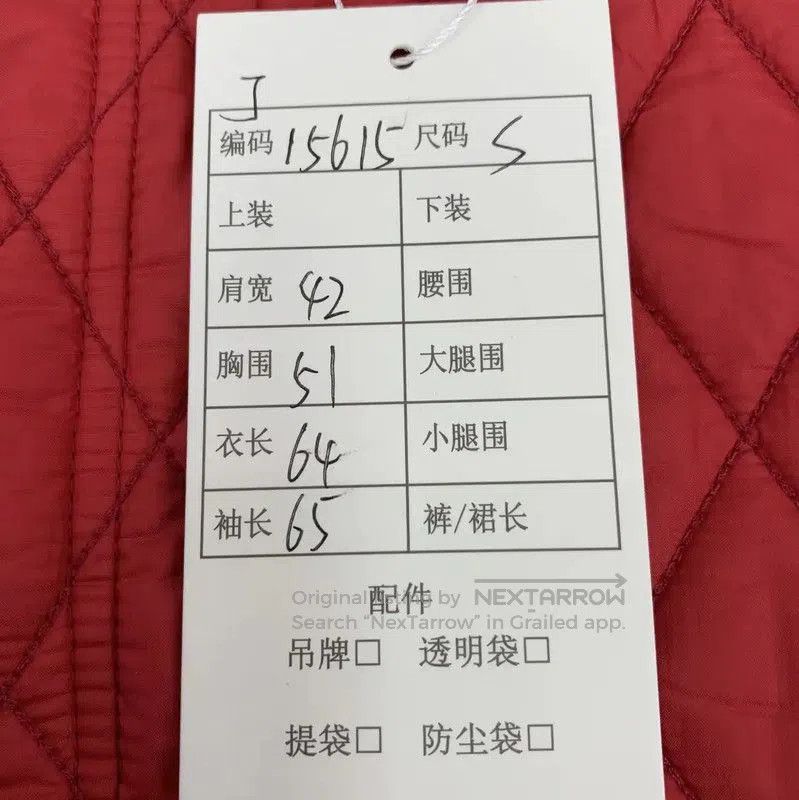 J
编码 15615 尺码 S
上装 下装
肩宽 42 腰围
胸围 51 大腿围
衣长 64 小腿围
袖长 65 裤/裙长
配件
Original listing by NEXTARROW
Search “NexTarrow” in Grailed app.
吊牌□ 透明袋□
提袋□ 防尘袋□